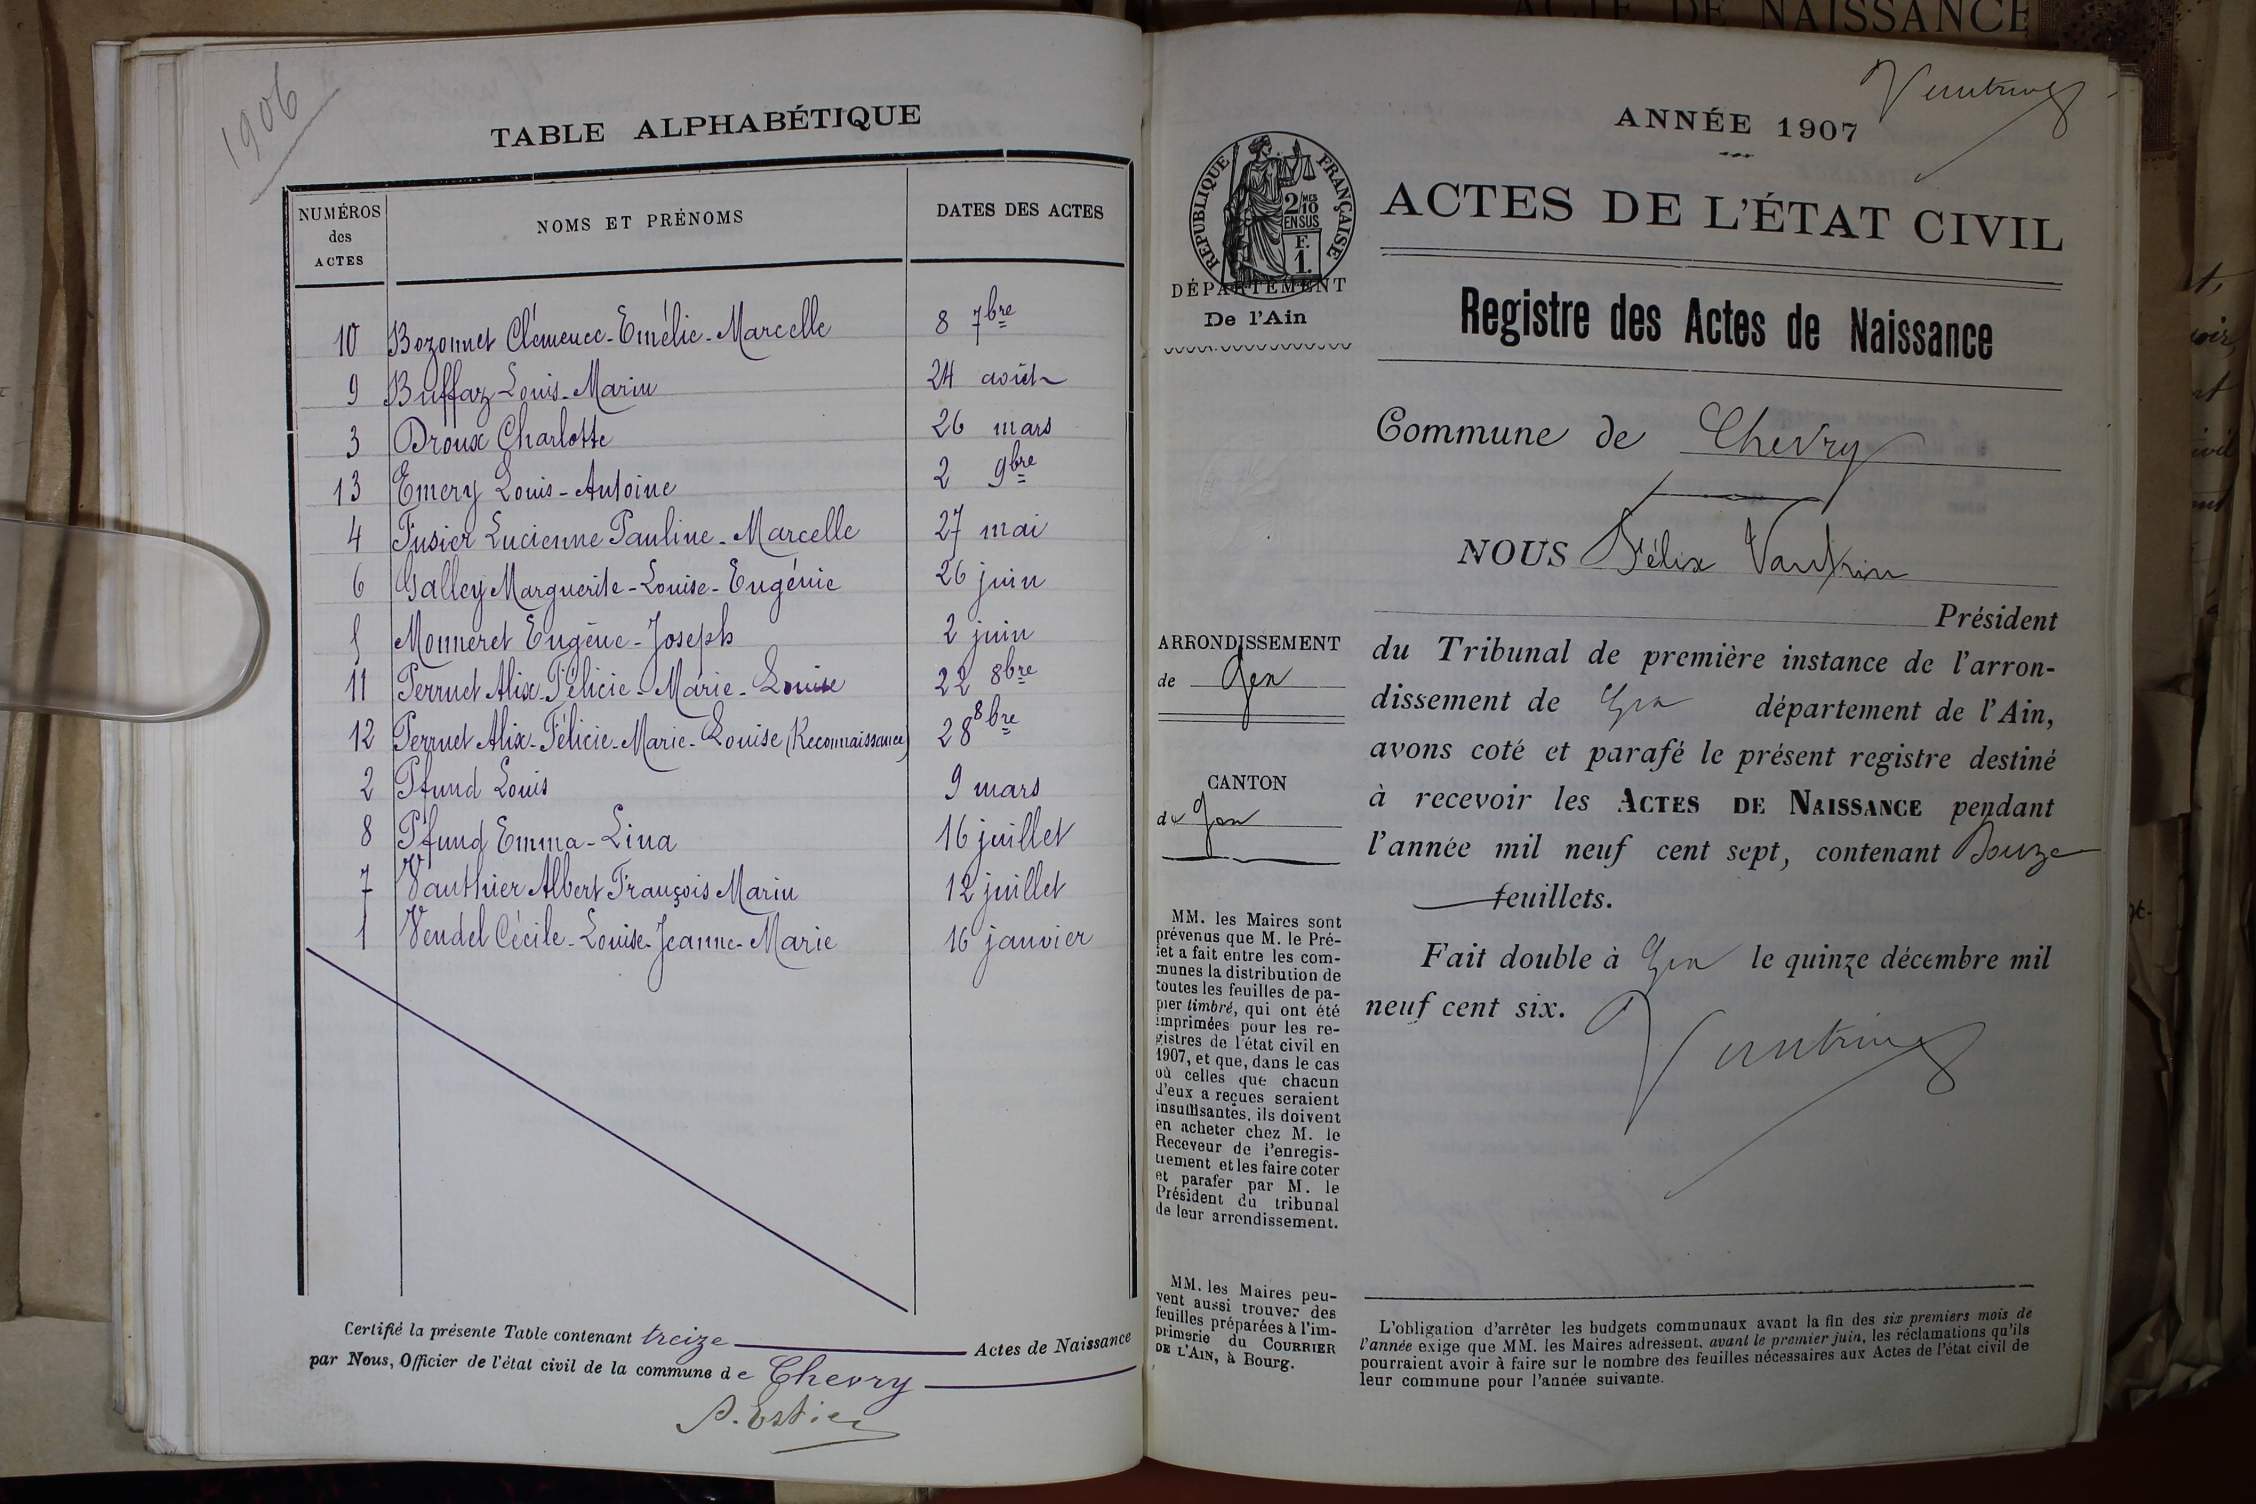 ACTE DE NAISSANCE
1906
TABLE ALPHABÉTIQUE
NUMÉROS des ACTES
NOMS ET PRÉNOMS
DATES DES ACTES
10 Bozonnet Clémence-Emélie-Marcelle 8 7bre
9 Buffaz Louis-Marin 24 août
3 Droux Charlotte 26 mars
13 Emery Louis-Antoine 2 9bre
4 Fusier Lucienne Pauline-Marcelle 27 mai
6 Galley Marguerite-Louise-Eugénie 26 juin
5 Monneret Eugène-Joseph 2 juin
11 Perruet Alix-Félicie-Marie-Louise 22 8bre
12 Perruet Alix-Félicie-Marie-Louise (Reconnaissance) 28 8bre
2 Pfund Louis 9 mars
8 Pfund Emma-Lina 16 juillet
7 Vauthier Albert François Marin 12 juillet
1 Vendel Cécile-Louise-Jeanne-Marie 16 janvier
Certifié la présente Table contenant treize Actes de Naissance
par Nous, Officier de l'état civil de la commune de Chevry
ANNÉE 1907
RÉPUBLIQUE FRANÇAISE
2/MES 10 EN SUS
F. 1.
DÉPARTEMENT
De l'Ain
ACTES DE L'ÉTAT CIVIL
Registre des Actes de Naissance
Commune de Chevry
NOUS Félix Vautrin
Président
ARRONDISSEMENT
de Gex
CANTON
de Gex
du Tribunal de première instance de l'arron-
dissement de Gex département de l'Ain,
avons coté et parafé le présent registre destiné
à recevoir les ACTES DE NAISSANCE pendant
l'année mil neuf cent sept, contenant Douze
feuillets.
Fait double à Gex le quinze décembre mil
neuf cent six.
MM. les Maires sont
prévenus que M. le Pré-
fet a fait entre les com-
munes la distribution de
toutes les feuilles de pa-
pier timbré, qui ont été
imprimées pour les re-
gistres de l'état civil en
1907, et que, dans le cas
où celles que chacun
d'eux a reçues seraient
insuffisantes, ils doivent
en acheter chez M. le
Receveur de l'enregis-
trement et les faire coter
et parafer par M. le
Président du tribunal
de leur arrondissement.
MM. les Maires peu-
vent aussi trouver des
feuilles préparées à l'im-
primerie du COURRIER
DE L'AIN, à Bourg.
L'obligation d'arrêter les budgets communaux avant la fin des six premiers mois de
l'année exige que MM. les Maires adressent, avant le premier juin, les réclamations qu'ils
pourraient avoir à faire sur le nombre des feuilles nécessaires aux Actes de l'état civil de
leur commune pour l'année suivante.